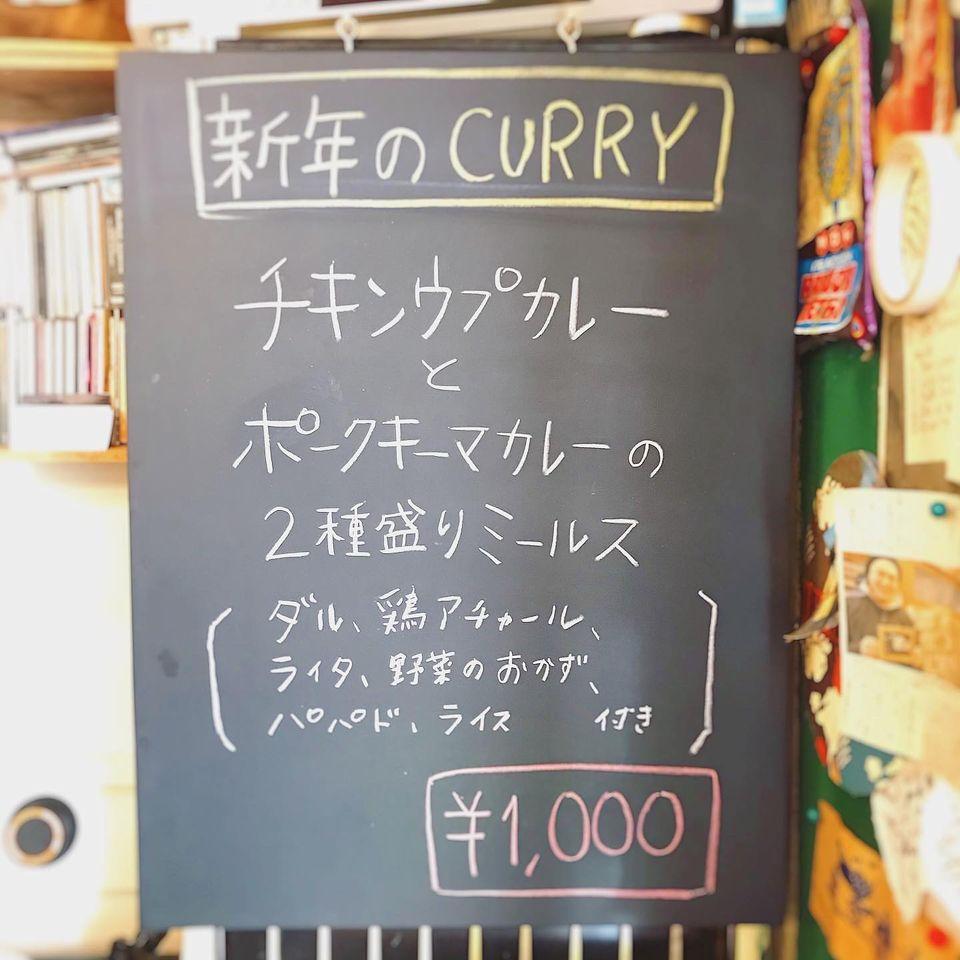 新年のCURRY
チキンウプカレー
と
ポークキーマカレーの
2種盛りミールス
ダル、鶏アチャール、
ライタ、野菜のおかず、
パパド、ライス 付き
¥1,000